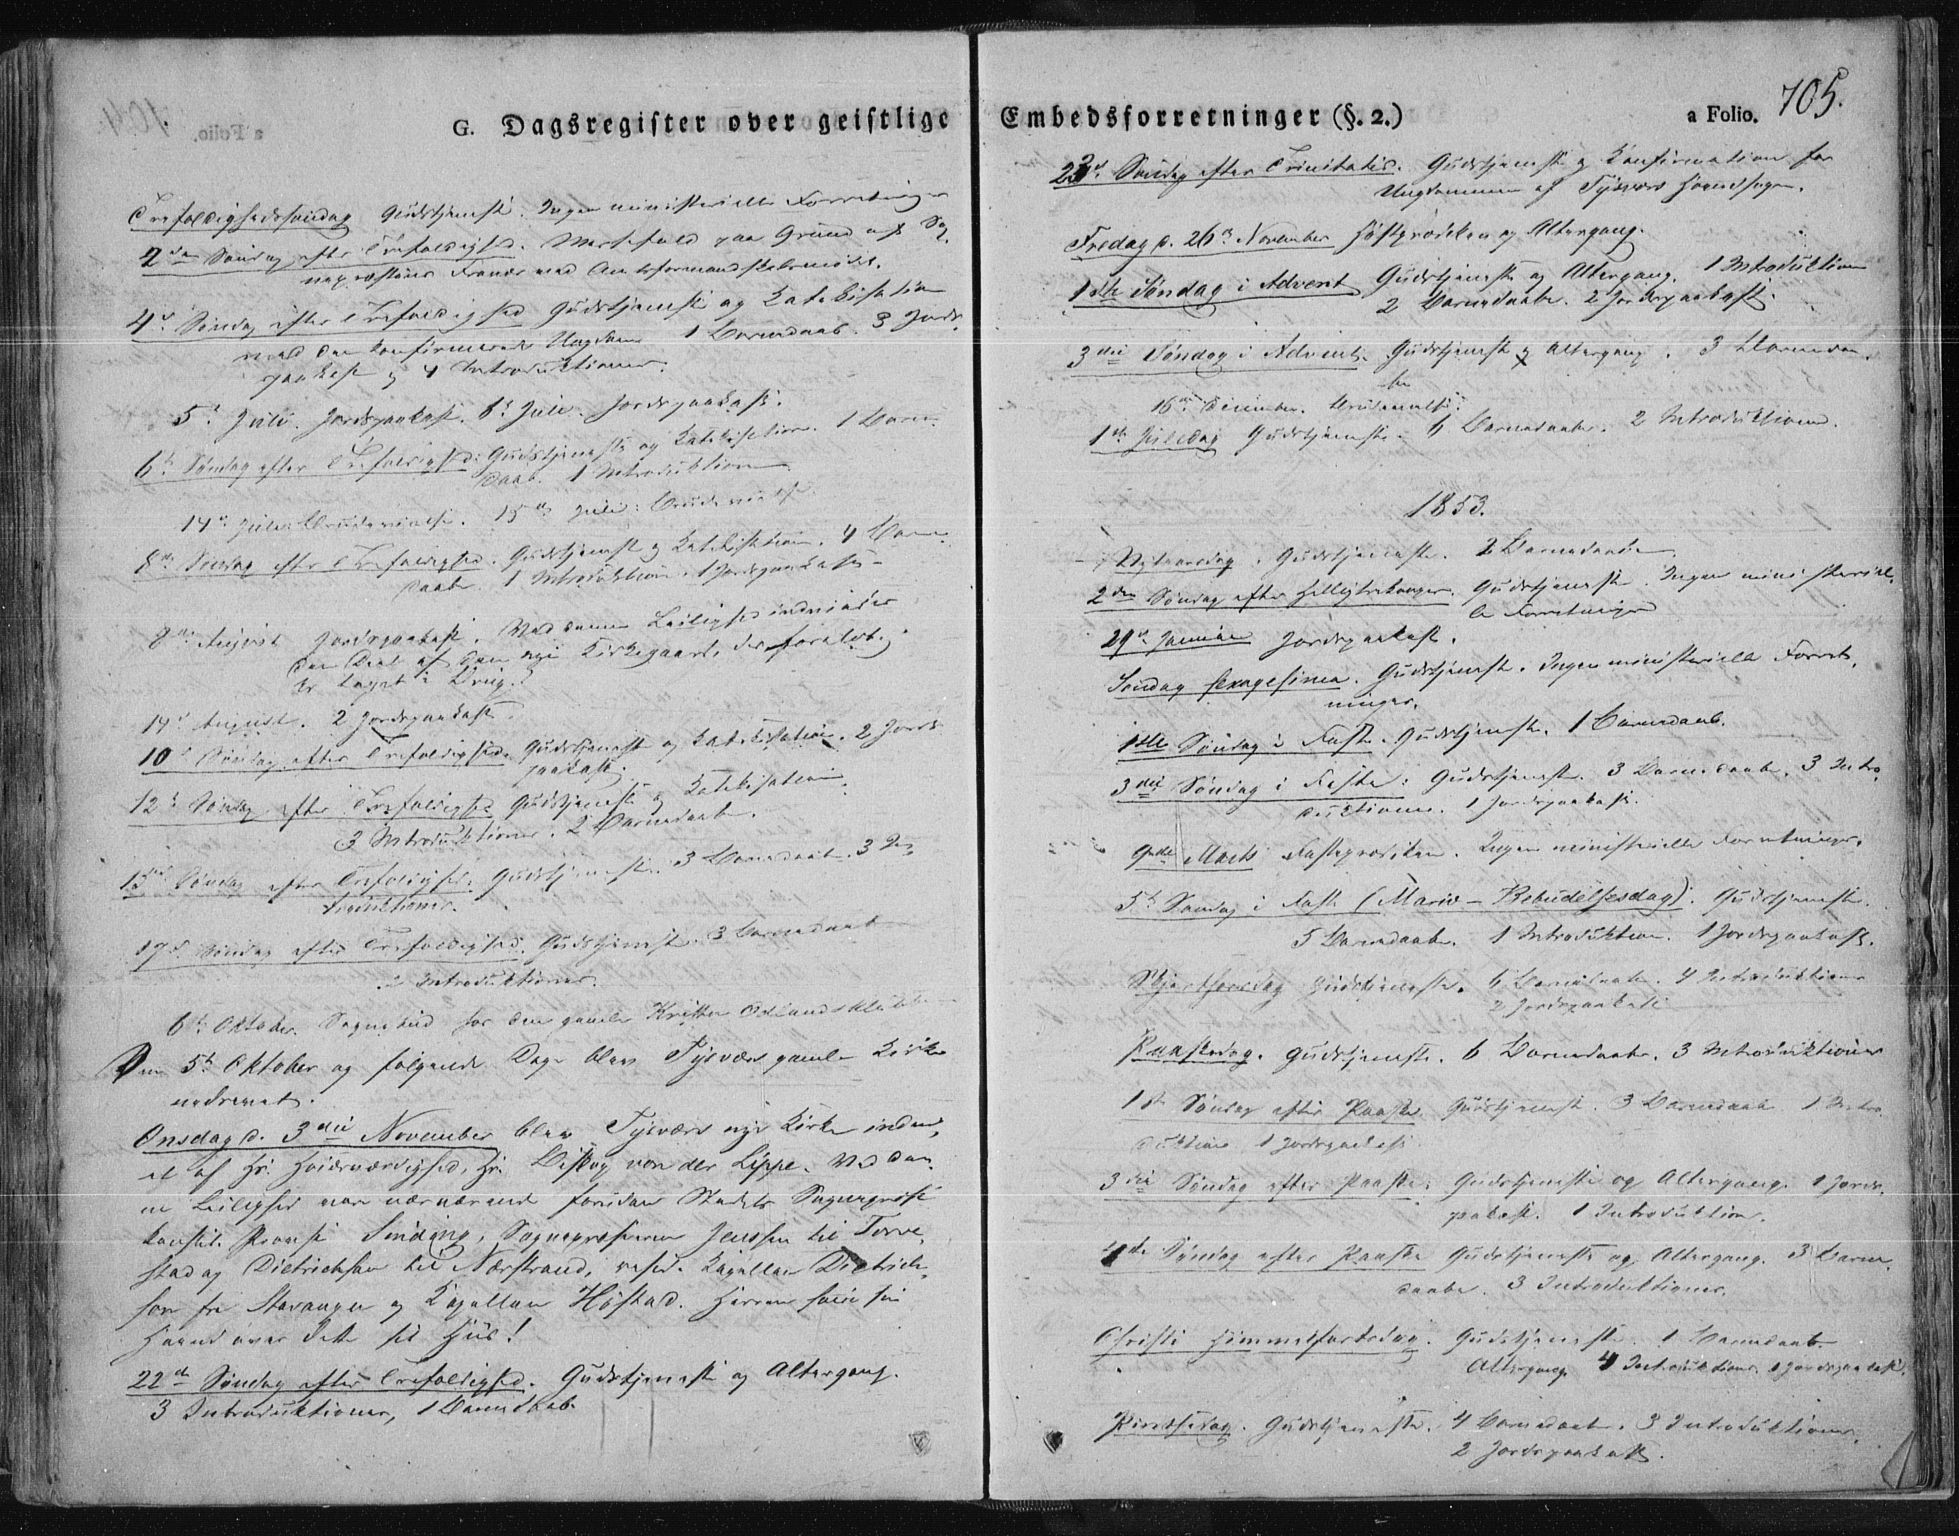 G. Dagsregister over geistlige
Trefoldighedssøndag Gudstjeneste. Ingen ministerielle Forretninger
2den Søndag efter Trefoldighed. Messefald paa Grund af Sog-
nepræstens Fravær ved Amtsformandskabsmødet.
4de Søndag efter Trefoldighed Gudstjeneste og Katekisation
med den konfirmerede Ungdom 1 Barnedaab. 3 Jords-
paakast og 4 Introduktioner.
5te Juli. Jordspaakast. 8de Juli. Jordspaakast.
6te Søndag efter Trefoldighed: Gudstjeneste og Katekisation. 1 Barne-
daab. 1 Introduktion.
14de Juli: Brudevielse. 15de Juli: Brudevielse.
8de Søndag efter Trefoldighed. Gudstjeneste og Katekisation. 4 Barne-
daabe. 1 Introduktion. 1 Jordspaakast.
8de August Jordspaakast. Ved denne Leilighed indviedes
den Deel af den nye Kirkegaard, der foreløbig
er taget i Brug.
14de August. 2 Jordspaakast.
10de Søndag efter Trefoldighed. Gudstjeneste og Katekisation. 2 Jords-
paakast.
12te Søndag efter Trefoldighed Gudstjeneste og Katekisation.
3 Introduktioner. 2 Barnedaabe.
15de Søndag efter Trefoldighed. Gudstjeneste. 3 Barnedaabe. 3 In-
troduktioner.
17de Søndag efter Trefoldighed. Gudstjeneste. 3 Barnedaabe
2 Introduktioner.
6te Oktober. Sognebud for den gamle
Den 5te Oktober og følgende Dage blev Tysvær gamle Kirke
nedrevet.
Onsdag d. 3die November blev Tysvær nye Kirke indvi-
et af Hs. Høiærværdighed, Hr. Biskop von der Lippe. Ved den-
ne Leilighed var nærværende foruden Stedets Sognepræst
konstit. Provst Sinding, Sognepræsterne Jenssen til Torve-
stad og Dietrichson til Nærstrand, resid. Kapellan Dietrich-
son fra Stavanger og Kapellan Høstad. Herren holde sin
Haand over dette sit Huus!
22de Søndag efter Trefoldighed. Gudstjeneste og Altergang.
3 Introduktioner, 1 Barnedaab.
Embedsforretninger (§. 2.)
a Folio. 105.
23de Søndag efter Trinitatis. Gudstjeneste og Konfirmation for
Ungdommen af Tysvær Hovedsogn.
Fredag d. 26de November Høstprædiken og Altergang.
1ste Søndag i Advent Gudstjeneste og Altergang. 1 Introduktion
2 Barnedaabe. 2 Jordspaakast.
3die Søndag i Advent. Gudstjeneste og Altergang. 3 Barnedaa-
be
16de December. Brudevielse.
1ste Juledag Gudstjeneste. 6 Barnedaabe. 2 Introduktioner.
1853.
Nytaarsdag. Gudstjeneste. 2 Barnedaabe.
2den Søndag efter Helligtrekonger. Gudstjeneste. Ingen ministeriel-
le Forretninger
29de Januar Jordspaakast.
Søndag Sexagesima. Gudstjeneste. Ingen ministerielle Forret-
ninger.
1ste Søndag i Faste. Gudstjeneste. 1 Barnedaab.
3die Søndag i Faste: Gudstjeneste. 3 Barnedaabe. 3 Intro-
duktioner. 1 Jordspaakast.
9de Marts Fasteprædiken. Ingen ministerielle Forretninger.
5te Søndag i Faste (Mariæ-Bebudelsesdag). Gudstjeneste.
5 Barnedaabe. 1 Introduktion. 1 Jordspaakast.
Skjærthorsdag Gudstjeneste. 6 Barnedaabe. 4 Introduktioner
2 Jordspaakast
Paaskedag. Gudstjeneste. 6 Barnedaabe. 3 Introduktioner
1ste Søndag efter Paaske Gudstjeneste. 3 Barnedaabe 1 Intro-
duktion 1 Jordspaakast
3die Søndag efter Paaske. Gudstjeneste og Altergang. 1 Jords-
paakast. 1 Introduktion.
4de Søndag efter Paaske Gudstjeneste og Altergang. 3 Barne-
daabe. 3 Introduktioner.
Christi Himmelfartsdag. Gudstjeneste. 1 Barnedaab.
Altergang 4 Introduktioner. 1 Jordspaakast.
Pintsedag. Gudstjeneste. 4 Barnedaabe. 3 Introduktioner.
2 Jordspaakast.